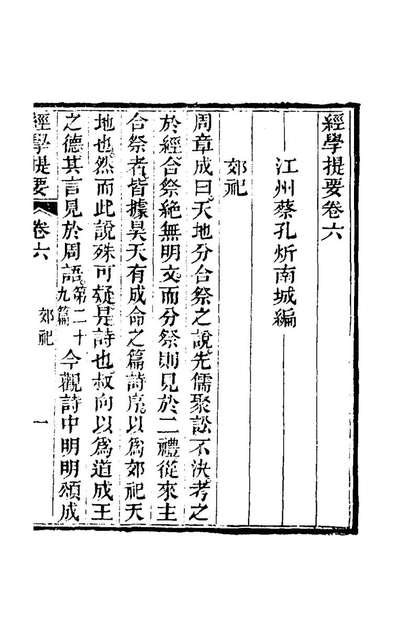 經學提要卷六
江州蔡孔炘南城編
郊祀
周章成曰天地分合祭之說先儒聚訟不決考之
於經合祭絶無明文而分祭則見於二禮從來主
合祭者皆據昊天有成命之篇詩序以爲郊祀天
地也然而此說殊可疑是詩也叔向以爲道成王
之德其言見於周語第二十九篇今觀詩中明明頌成
經學提要 卷六 郊祀 一